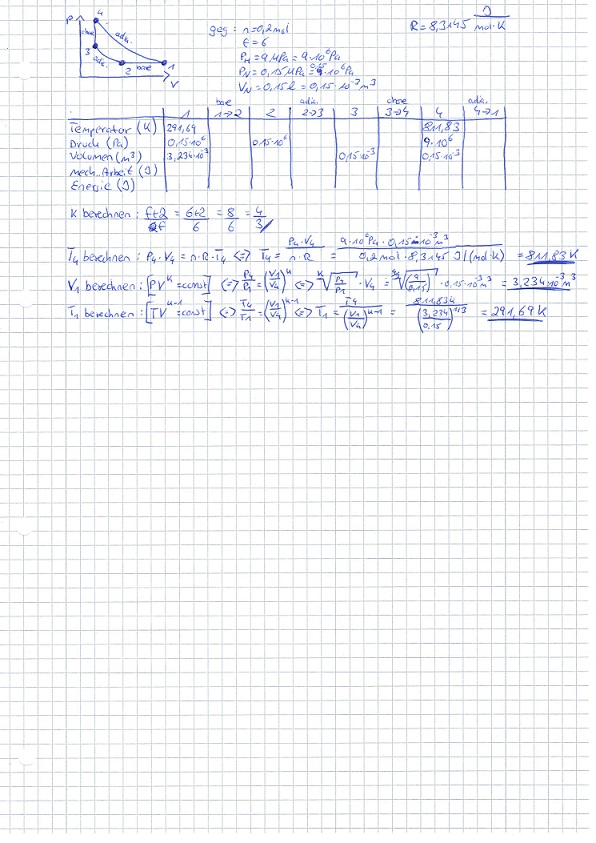 P
4
adi.
choe
3
adi.
2
bae
1
V
geg: n=0,2mol
f=6
P_H = 9MPa = 9·10⁶Pa
P_N = 0,15MPa = 0,15·10⁶Pa
V_N = 0,15l = 0,15·10⁻³m³
R = 8,3145 J/mol·K
1 | bae 1→2 | 2 | adia. 2→3 | 3 | choe 3→4 | 4 | adia. 4→1
Temperatur (K) 291,69 811,83
Druck (Pa) 0,15·10⁶ 0,15·10⁶ 9·10⁶
Volumen (m³) 3,234·10⁻³ 0,15·10⁻³ 0,15·10⁻³
mech. Arbeit (J)
Energie (J)
K berechnen: f+2/f = 6+2/6 = 8/6 = 4/3
T₄ berechnen: P₄·V₄ = n·R·T₄ <=> T₄ = P₄·V₄/n·R = 9·10⁶Pa·0,15·10⁻³m³/0,2mol·8,3145 J/(mol·K) = 811,83K
V₁ berechnen: [PV^K = const] <=> P₄/P₁ = (V₁/V₄)^K <=> ᴷ√(P₄/P₁)·V₄ = ⁴ᐟ³√(9/0,15)·0,15·10⁻³m³ = 3,234·10⁻³m³
T₁ berechnen: [TV^K-1 = const] <=> T₄/T₁ = (V₁/V₄)^K-1 <=> T₁ = T₄/(V₁/V₄)^K-1 = 811,834/(3,234/0,15)^1/3 = 291,69K